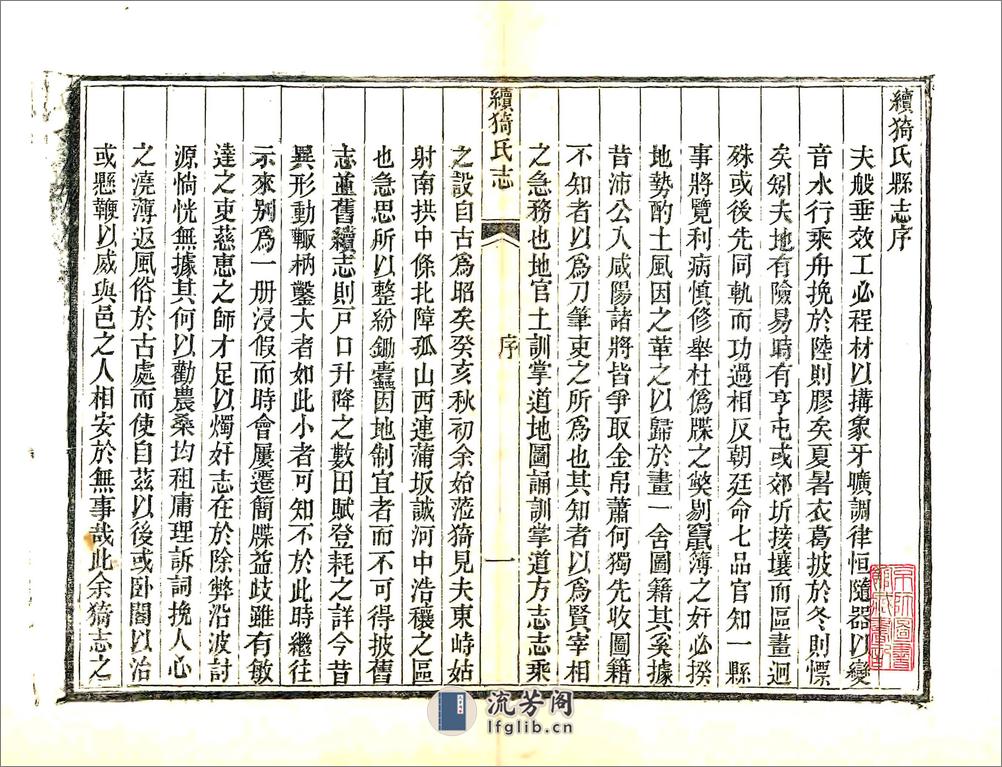 續猗氏縣志序
夫般垂效工必程材以搆象牙曠調律恒隨器以變
音水行乘舟挽於陸則膠矣夏暑衣葛披於冬則慄
矣矧夫地有險易時有亨屯或郊圻接壤而區畫迥
殊或後先同軌而功過相反朝廷命七品官知一縣
事將覽利病慎修舉杜僞牒之獘剔竄簿之奸必揆
地勢酌土風因之革之以歸於畫一舍圖籍其奚據
昔沛公入咸陽諸將皆爭取金帛蕭何獨先收圖籍
不知者以爲刀筆吏之所爲也其知者以爲賢宰相
之急務也地官土訓掌道地圖誦訓掌道方志志乘
續猗氏志
序
一
之設自古爲昭矣癸亥秋初余始蒞猗見夫東峙姑
射南拱中條北障孤山西連蒲坂誠河中浩穰之區
也急思所以整紛鋤蠹因地制宜者而不可得披舊
志並舊續志則戸口升降之數田賦登耗之詳今昔
異形動輒枘鑿大者如此小者可知不於此時繼往
示來別爲一册浸假而時會屢遷簡牒益歧雖有敏
達之吏慈惠之師才足以燭奸志在於除弊沿波討
源惝恍無據其何以勸農桑均租庸理訴詞挽人心
之澆薄返風俗於古處而使自茲以後或卧閣以治
或懸鞭以威與邑之人相安於無事哉此余猗志之
京師圖書館藏書記
流芳阁
lfglib.cn